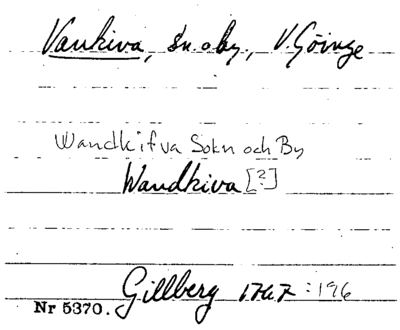 Vankiva, sn. o by, V. Göinge
Wandkifva Sokn och By
Wandkiva [?]
Gillberg 1767 :196
Nr 5370.